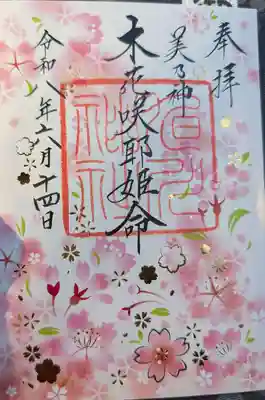 奉拝
美の神
木花咲耶姫命
令和八年六月十四日